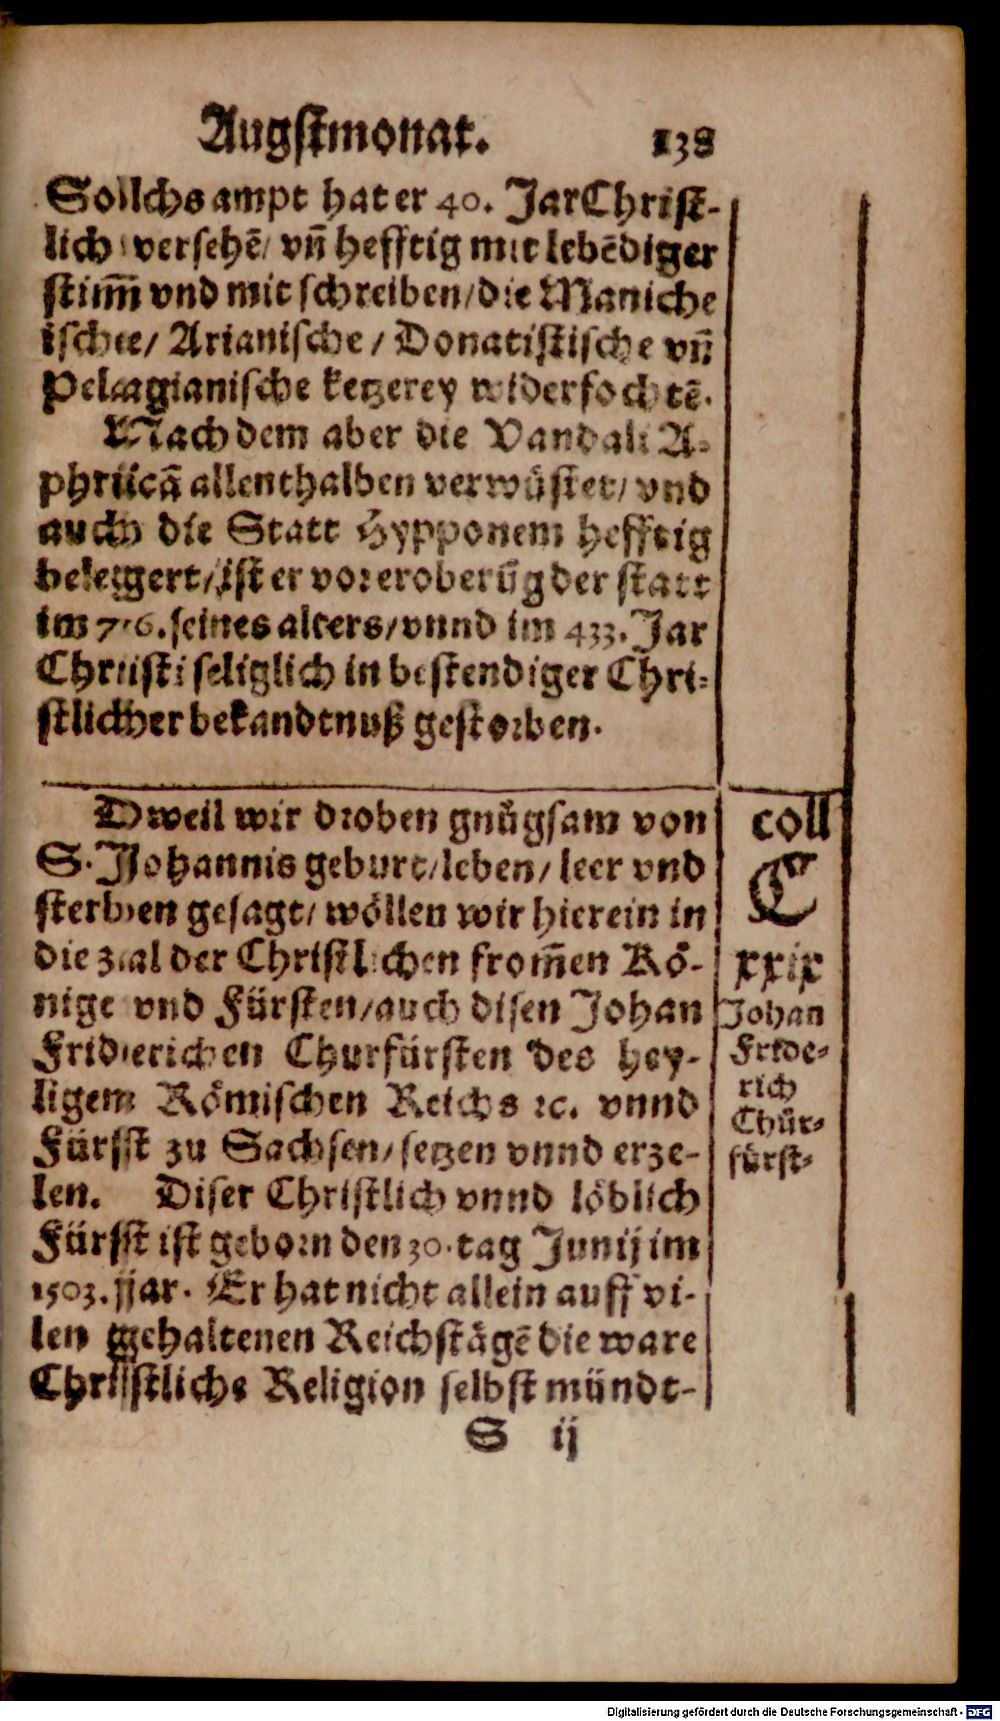 Augstmonat. 138
Sollchs ampt hat er 40. Jar Christ-
lich versehē/ vn̄ hefftig mit lebēdiger
stim̄ vnd mit schreiben/ die Maniche
ische/ Arianische/ Donatistische vn̄
Pelagianische ketzerey widerfochtē.
Nach dem aber die Vandali A-
phricā allenthalben verwüstet/ vnd
auch die Statt Hypponem hefftig
belegert/ ist er vor eroberūg der statt
im 76. seines alters/ vnnd im 433. Jar
Christi seliglich in bestendiger Chri-
stlicher bekandtnuß gestorben.
Dweil wir droben gnůgsam von
S. Johannis geburt/ leben/ leer vnd
sterben gesagt/ wöllen wir hierein in
die zal der Christlichen from̄en Kö-
nige vnd Fürsten/ auch disen Johan
Friderichen Churfürsten des hey-
ligem Römischen Reichs ꝛc. vnnd
Fürst zu Sachsen/ setzen vnnd erze-
len. Diser Christlich vnnd löblich
Fürst ist geborn den 30. tag Junij im
1503. jar. Er hat nicht allein auff vi-
len gehaltenen Reichstägē die ware
Christliche Religion selbst mündt-
S ij
coll
C
xxix
Johan
Fride-
rich
Chür-
fürst-
Digitalisierung gefördert durch die Deutsche Forschungsgemeinschaft - DFG